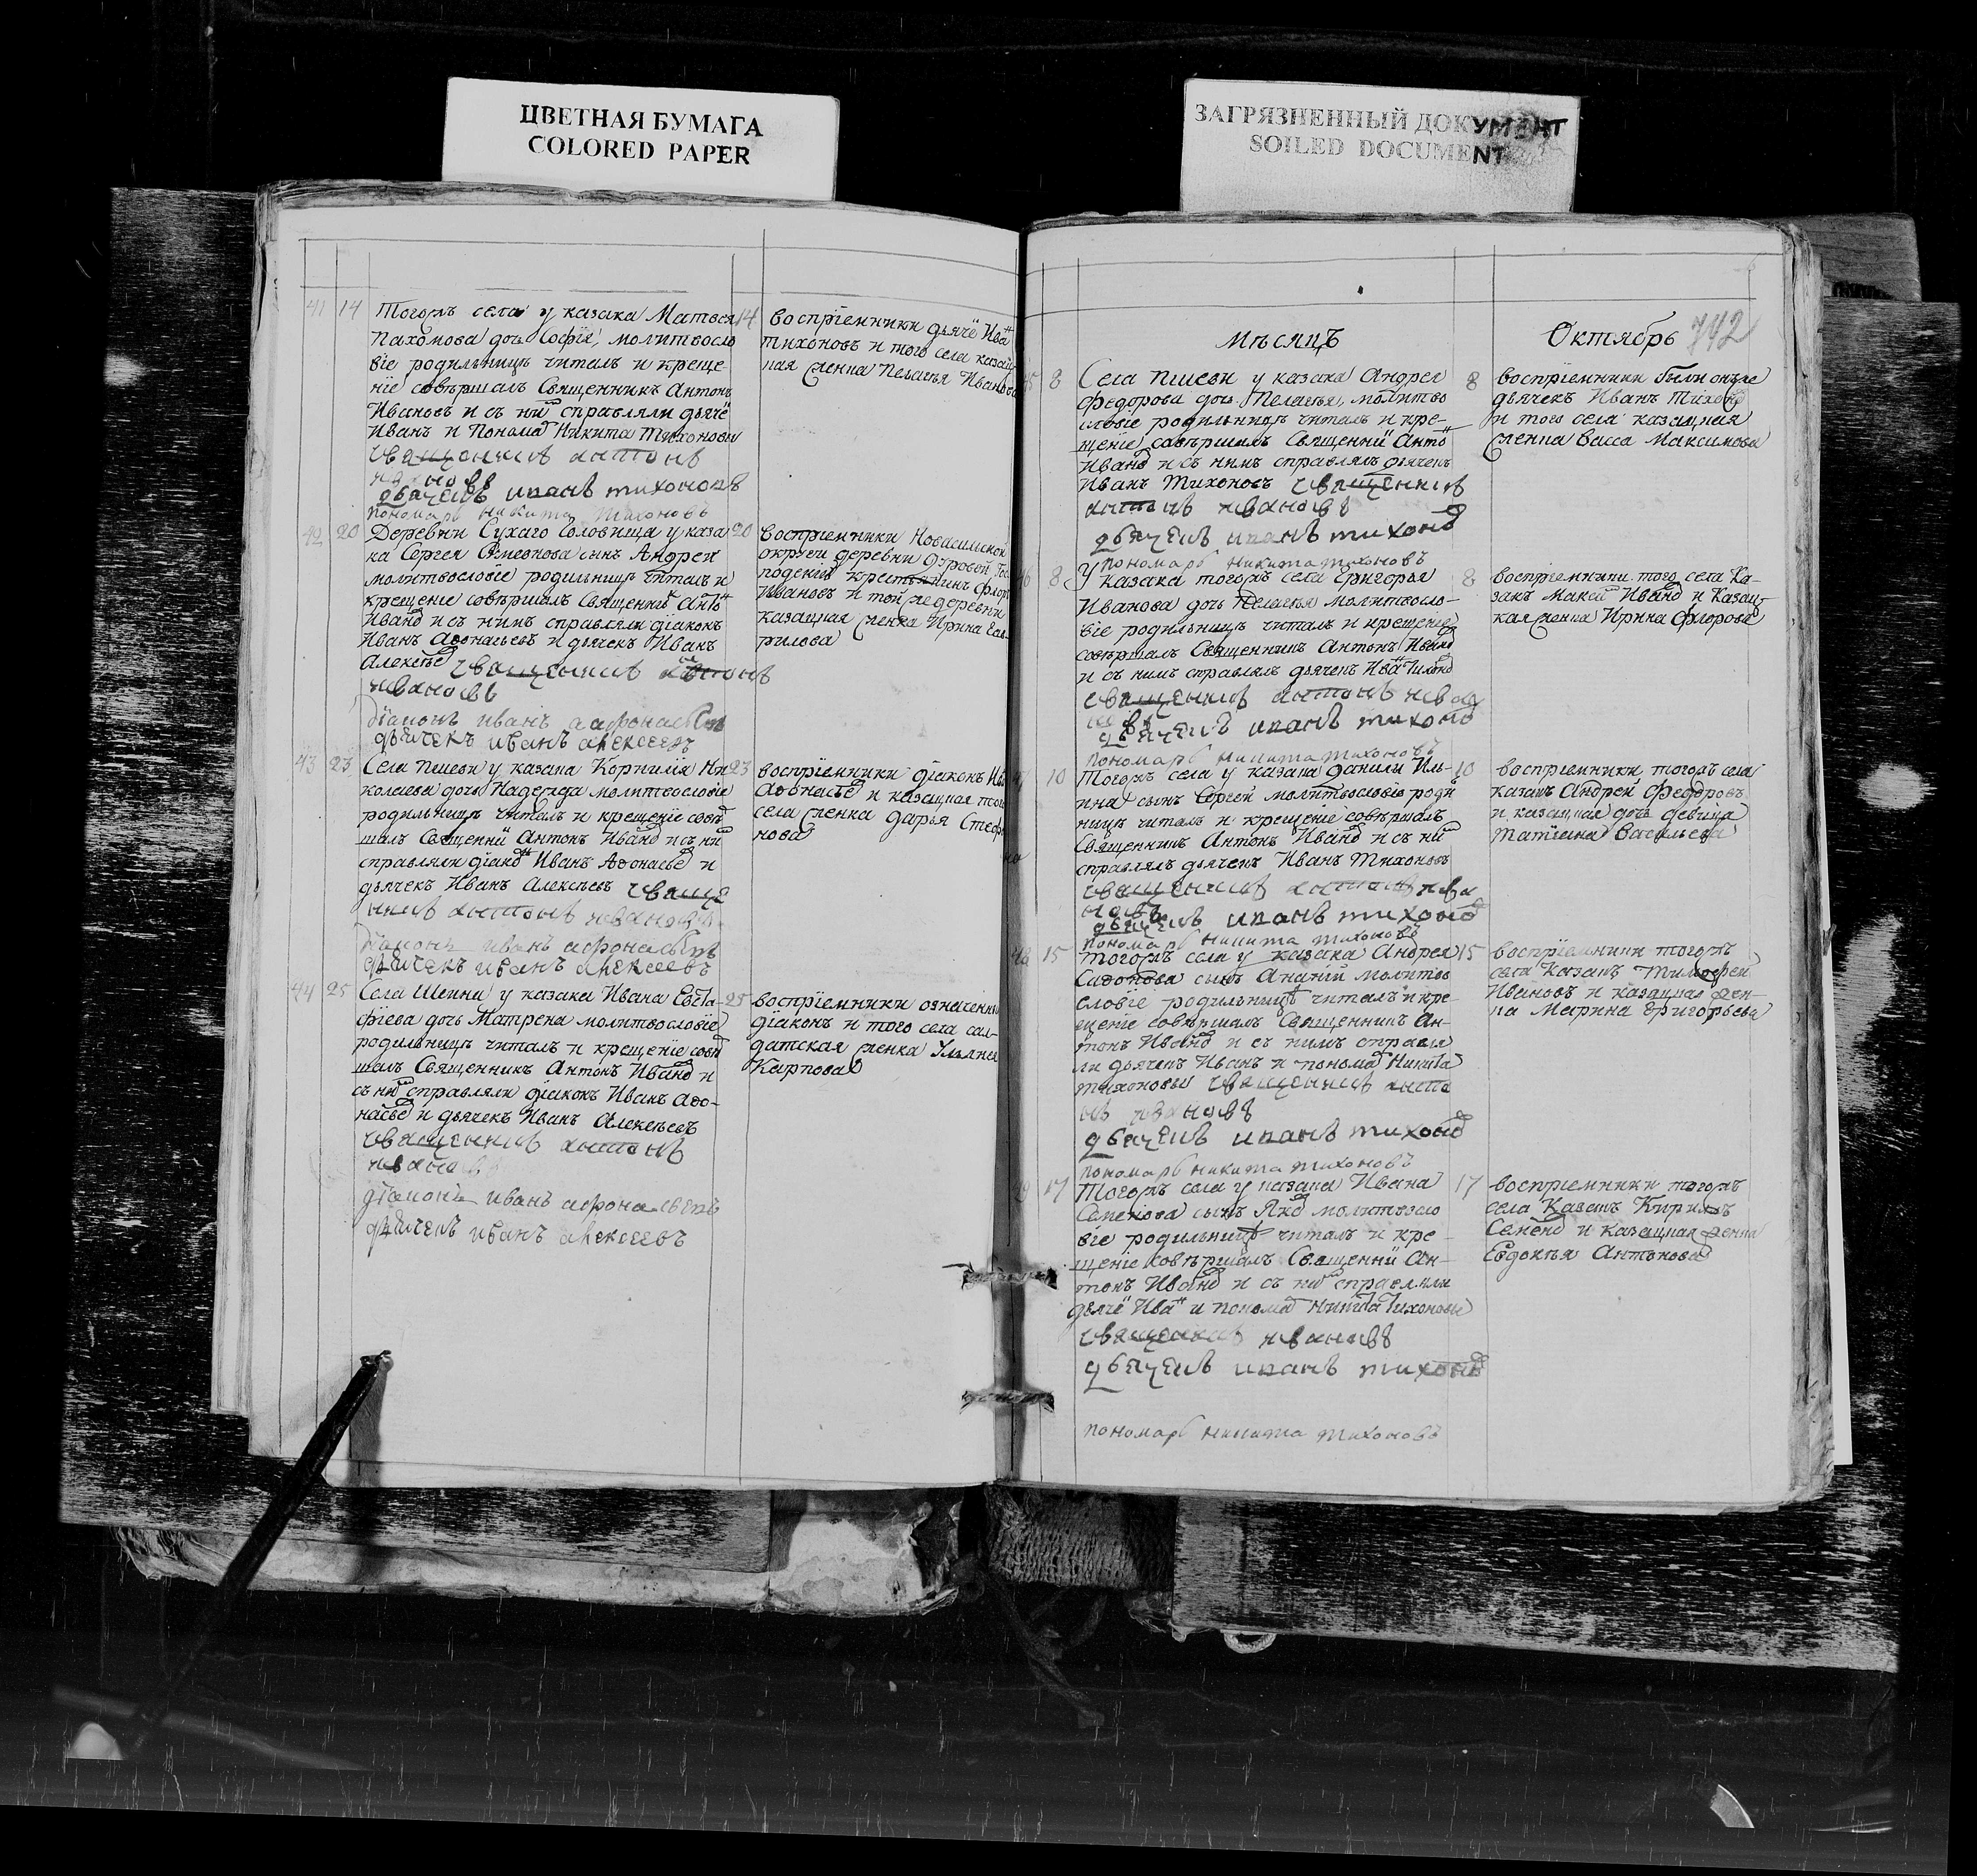 ЦВЕТНАЯ БУМАГА
COLORED PAPER
ЗАГРЯЗНЕННЫЙ ДОКУМЕНТ
SOILED DOCUMENT
41 14 Тогожъ села у казака Матвея
Пахомова дочь Софїя, молитвосло
вїе родильницѣ читалъ и креще
нїе совѣршалъ Священникъ Антонъ
Ивановъ и съ ни справляли дьячё
Иванъ и Понома Никита Тихоновы
священникъ антонъ
ивановъ
дьячекъ иванъ тихоновъ
пономарь никита тихоновъ
14 воспрїемники дьячё Ива
тихоновъ и того села казач
кая женка Пелагѣя Иванова
42 20 Деревни Сухаго Соловца у каза
ка Сергея Симеонова сынъ Андрей
молитвословїе родильницѣ читалъ и
крещенїе совѣршалъ Священни Анто
Ивано и съ нимъ справляли дїаконъ
Иванъ Аѳонасьевъ и дьячекъ Иванъ
Алексѣе священникъ антонъ
ивановъ
дїаконъ иванъ аѳонасьевъ
дьячекъ иванъ алексеевъ
20 воспрїемники Новасильской
округи деревни Гос
подскїй крестьянинъ
Ивановъ и той же деревни
казацкая женка Ирина Гав
рилова
43 23 Села Пшеви у казака Корнилїя Ни
колаева дочь Надежда молитвословїе
родильницѣ читалъ и крещенїе совѣ
шалъ Священни Антонъ Ивано и съ ни
справляли дїако Иванъ Аѳонасье и
дьячекъ Иванъ Алексѣевъ свяще
нникъ антонъ ивановъ
дїаконъ иванъ аѳонасьевъ
дьячекъ иванъ алексеевъ
23 воспрїемники дїаконъ Ива
Аѳонасье и казацкая того
села женка Дарья Стефа
нова
44 25 Села Шеина у казака Ивана Евста-
фїева дочь Матрена молитвословїе
родильницѣ читалъ и крещенїе совѣ
шалъ Священникъ Антонъ Ивано и
съ ни справляли дїаконъ Иванъ Аѳо-
насье и дьячекъ Иванъ Алексѣевъ
священникъ антонъ
ивановъ
дїаконъ иванъ аѳонасьевъ
дьячекъ иванъ алексеевъ
25 воспрїемники означенны
дїаконъ и того села сал-
датская женка Ульяна
Карпова
742
Мѣсяцъ Октябрь
45 8 Села Пшеви у казака Андрея
Федорова дочь Пелагѣя, молитво
словїе родильницѣ читалъ и кре-
щенїе совѣршалъ Священни Анто
Ивано и съ нимъ справлялъ дьячекъ
Иванъ Тихоновъ священникъ
антонъ ивановъ
дьячекъ иванъ тихоно
пономарь никита тихоновъ
8 воспрїемники были оные
дьячекъ Иванъ Тихоно
и того села казацкая
женка Васса Максимова
46 8 У казака тогожъ села Григорья
Иванова дочь Пелагѣя молитвосло-
вїе родильницѣ читалъ и крещенїе
совѣршалъ Священникъ Антонъ Ивано
и съ нимъ справлялъ дьячекъ Ива Тихоно
священникъ антонъ ивано
въ
дьячекъ иванъ тихоно
пономарь никита тихоновъ
8 воспрїемники того села Ка-
закъ Макси Ивано и Казац-
кая женка Ирина Фролова
47 10 Тогожъ села у казака Данилы Иль-
ина сынъ Сергей молитвословїе роди
ницѣ читалъ и крещенїе совѣршалъ
Священникъ Антонъ Ивано и съ ни
справлялъ дьячекъ Иванъ Тихоновъ
священникъ антонъ ива
новъ
дьячекъ иванъ тихоно
пономарь никита тихоновъ
10 воспрїемники тогожъ села
казакъ Андрей Федоровъ
и казацкая дочь девица
Татїана Васильева
48 15 тогожъ села у казака Андрея
Сафонова сынъ Ананїй молитво
словїе родильницѣ читалъ и кре-
щенїе совѣршалъ Священникъ Ан-
тонъ Ивано и съ нимъ справля
ли дьячекъ Иванъ и понома Никита
тихоновы священникъ анто
нъ ивановъ
дьячекъ иванъ тихоно
пономарь никита тихоновъ
15 воспрїемники тогожъ
села Казакъ Тимофей
Ивановъ и казацкая жен-
ка Марина Григорьева
49 17 Тогожъ села у казака Ивана
Семенова сынъ Яко молитвосло
вїе родильницѣ читалъ и кре-
щенїе совѣршалъ Священни Ан-
тонъ Ивано и съ ни справляли
дьячё Ива и понома Никита Тихоновы
священникъ ивановъ
дьячекъ иванъ тихоно
пономарь никита тихоновъ
17 воспрїемники тогожъ
села Казакъ Кирилъ
Семено и казацкая женка
Евдокѣя Антонова